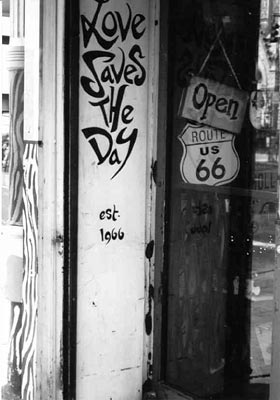 Love
Saves
The
Day
est.
1966
Open
ROUTE
US
66